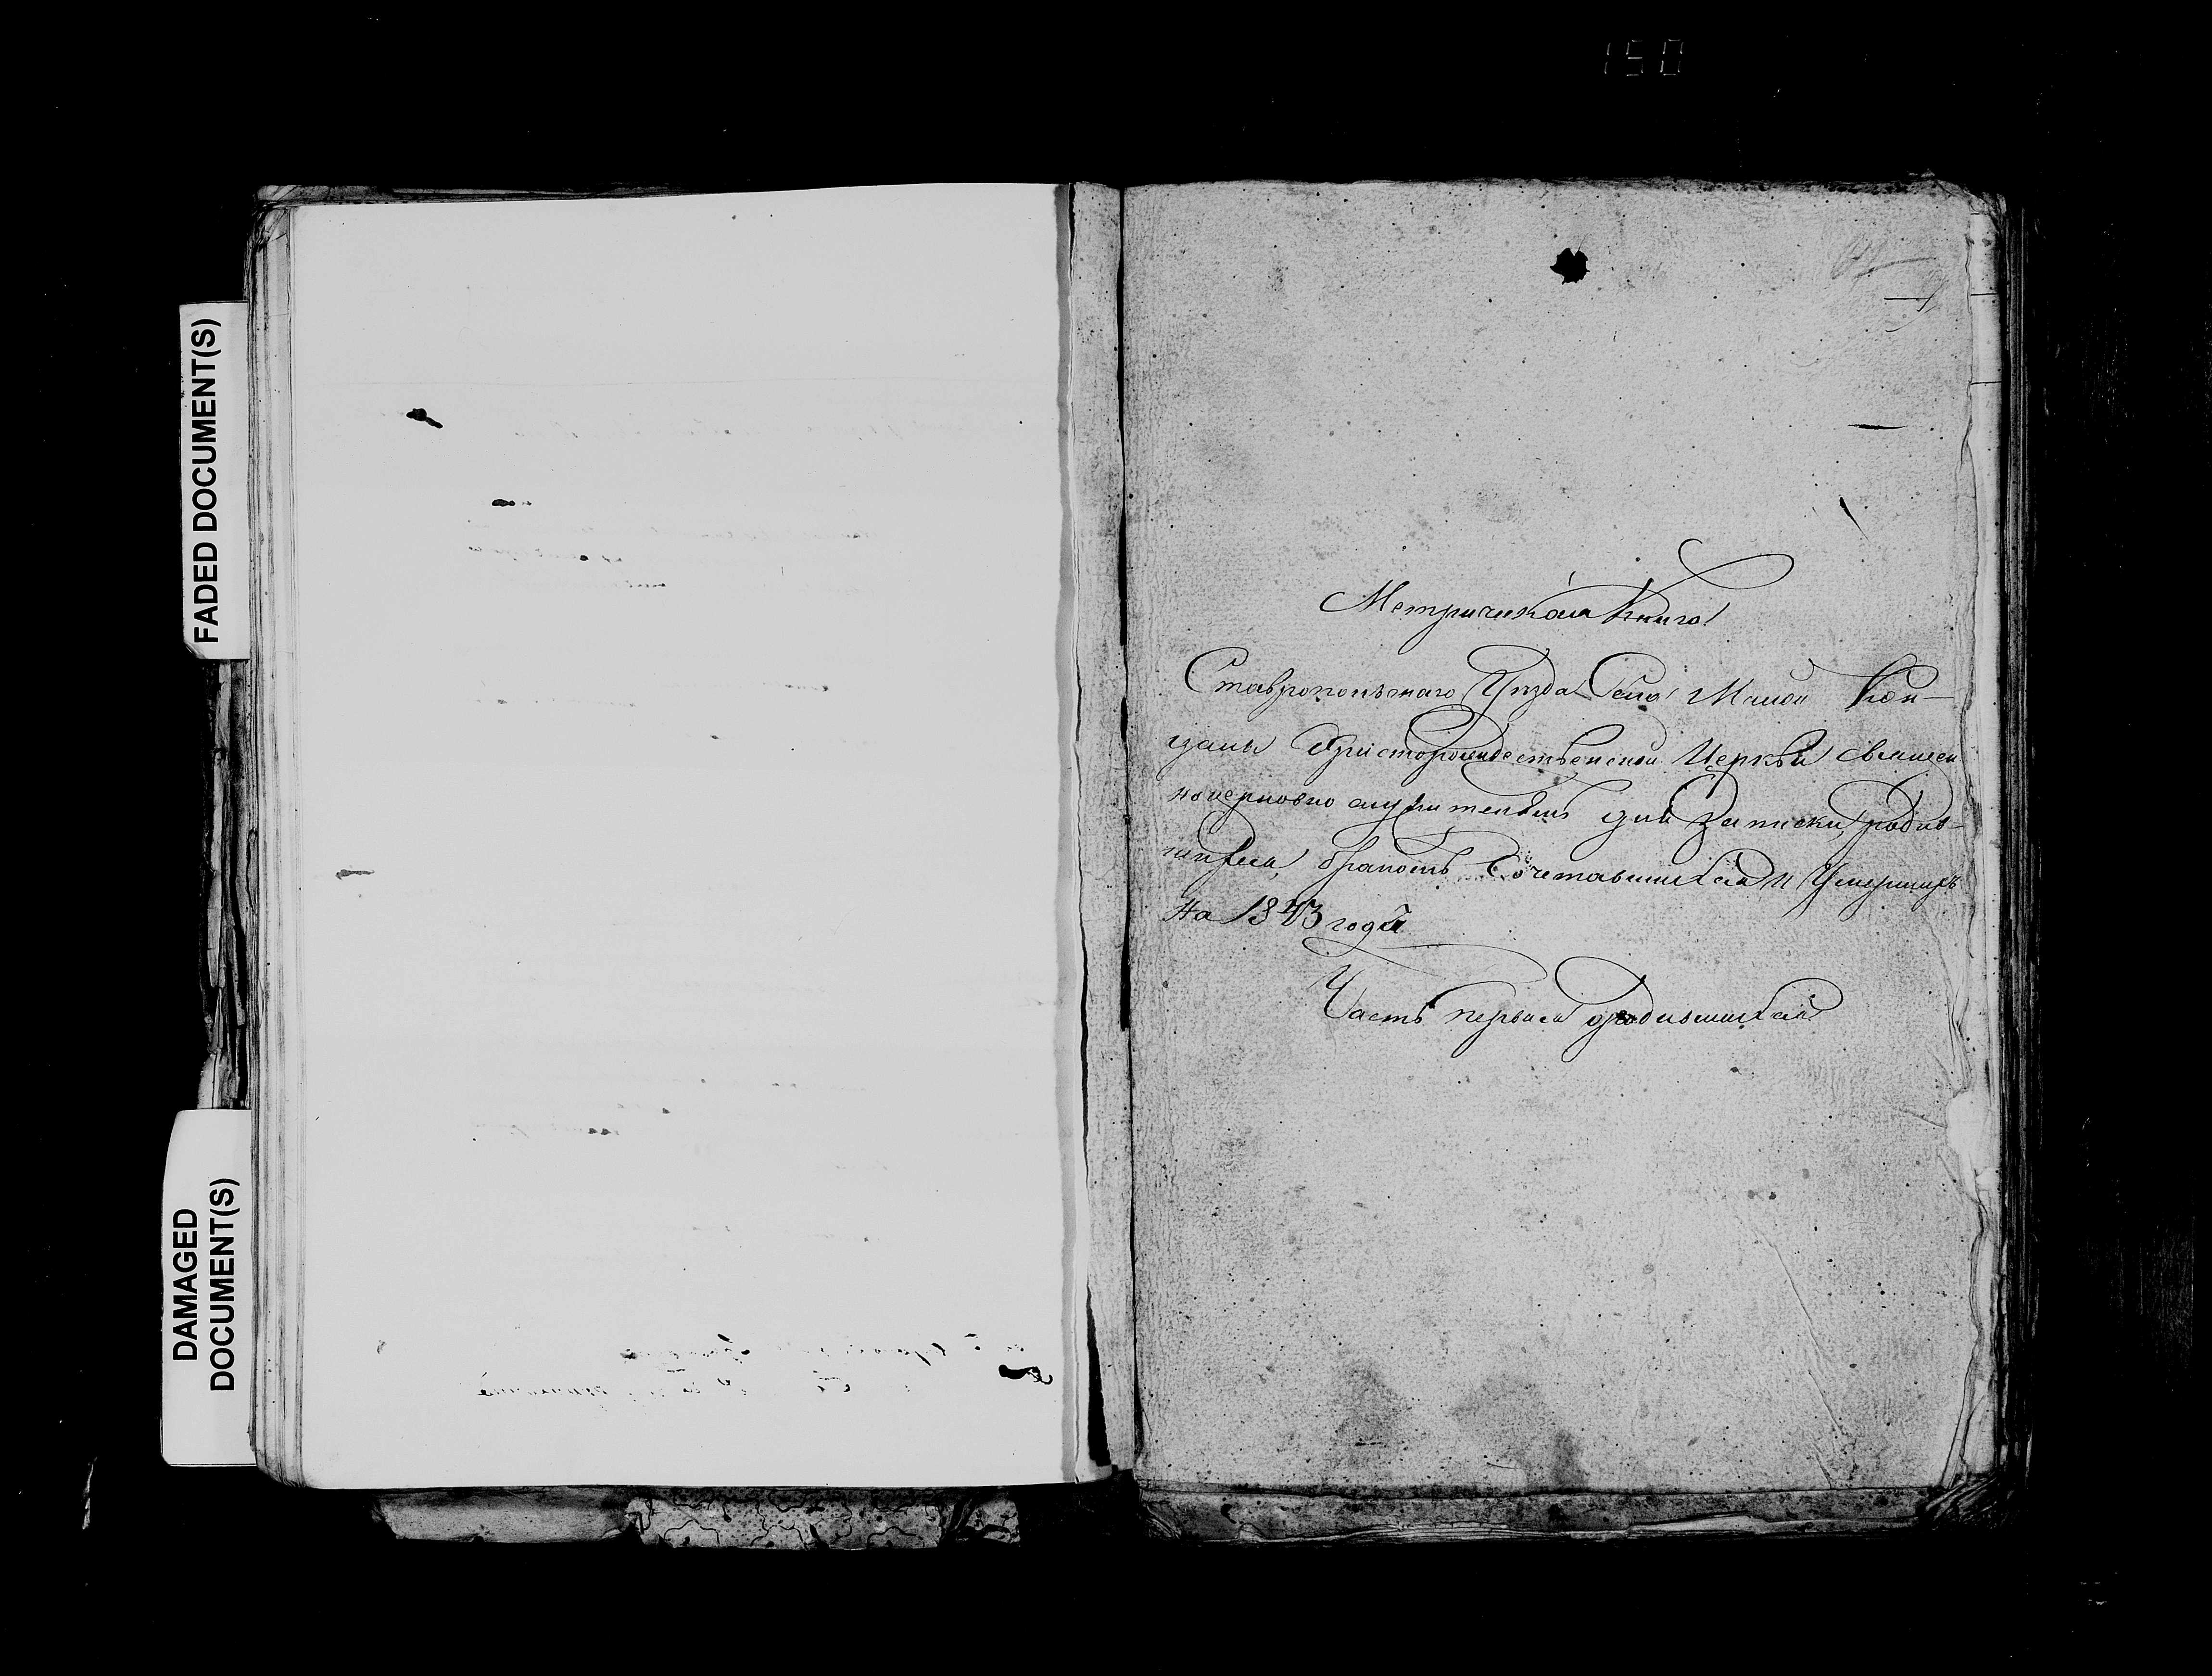 150
FADED DOCUMENT(S)
DAMAGED
DOCUMENT(S)
Метрическая Книга
Ставропольскаго Уѣзда Села Малой Кан-
далы Христорождественской Церкви священ
ноцерковно служителямъ для записки родив-
шихся, бракомъ Сочетавшихся и Умершихъ
На 1843 годъ
Часть первая о родившихся